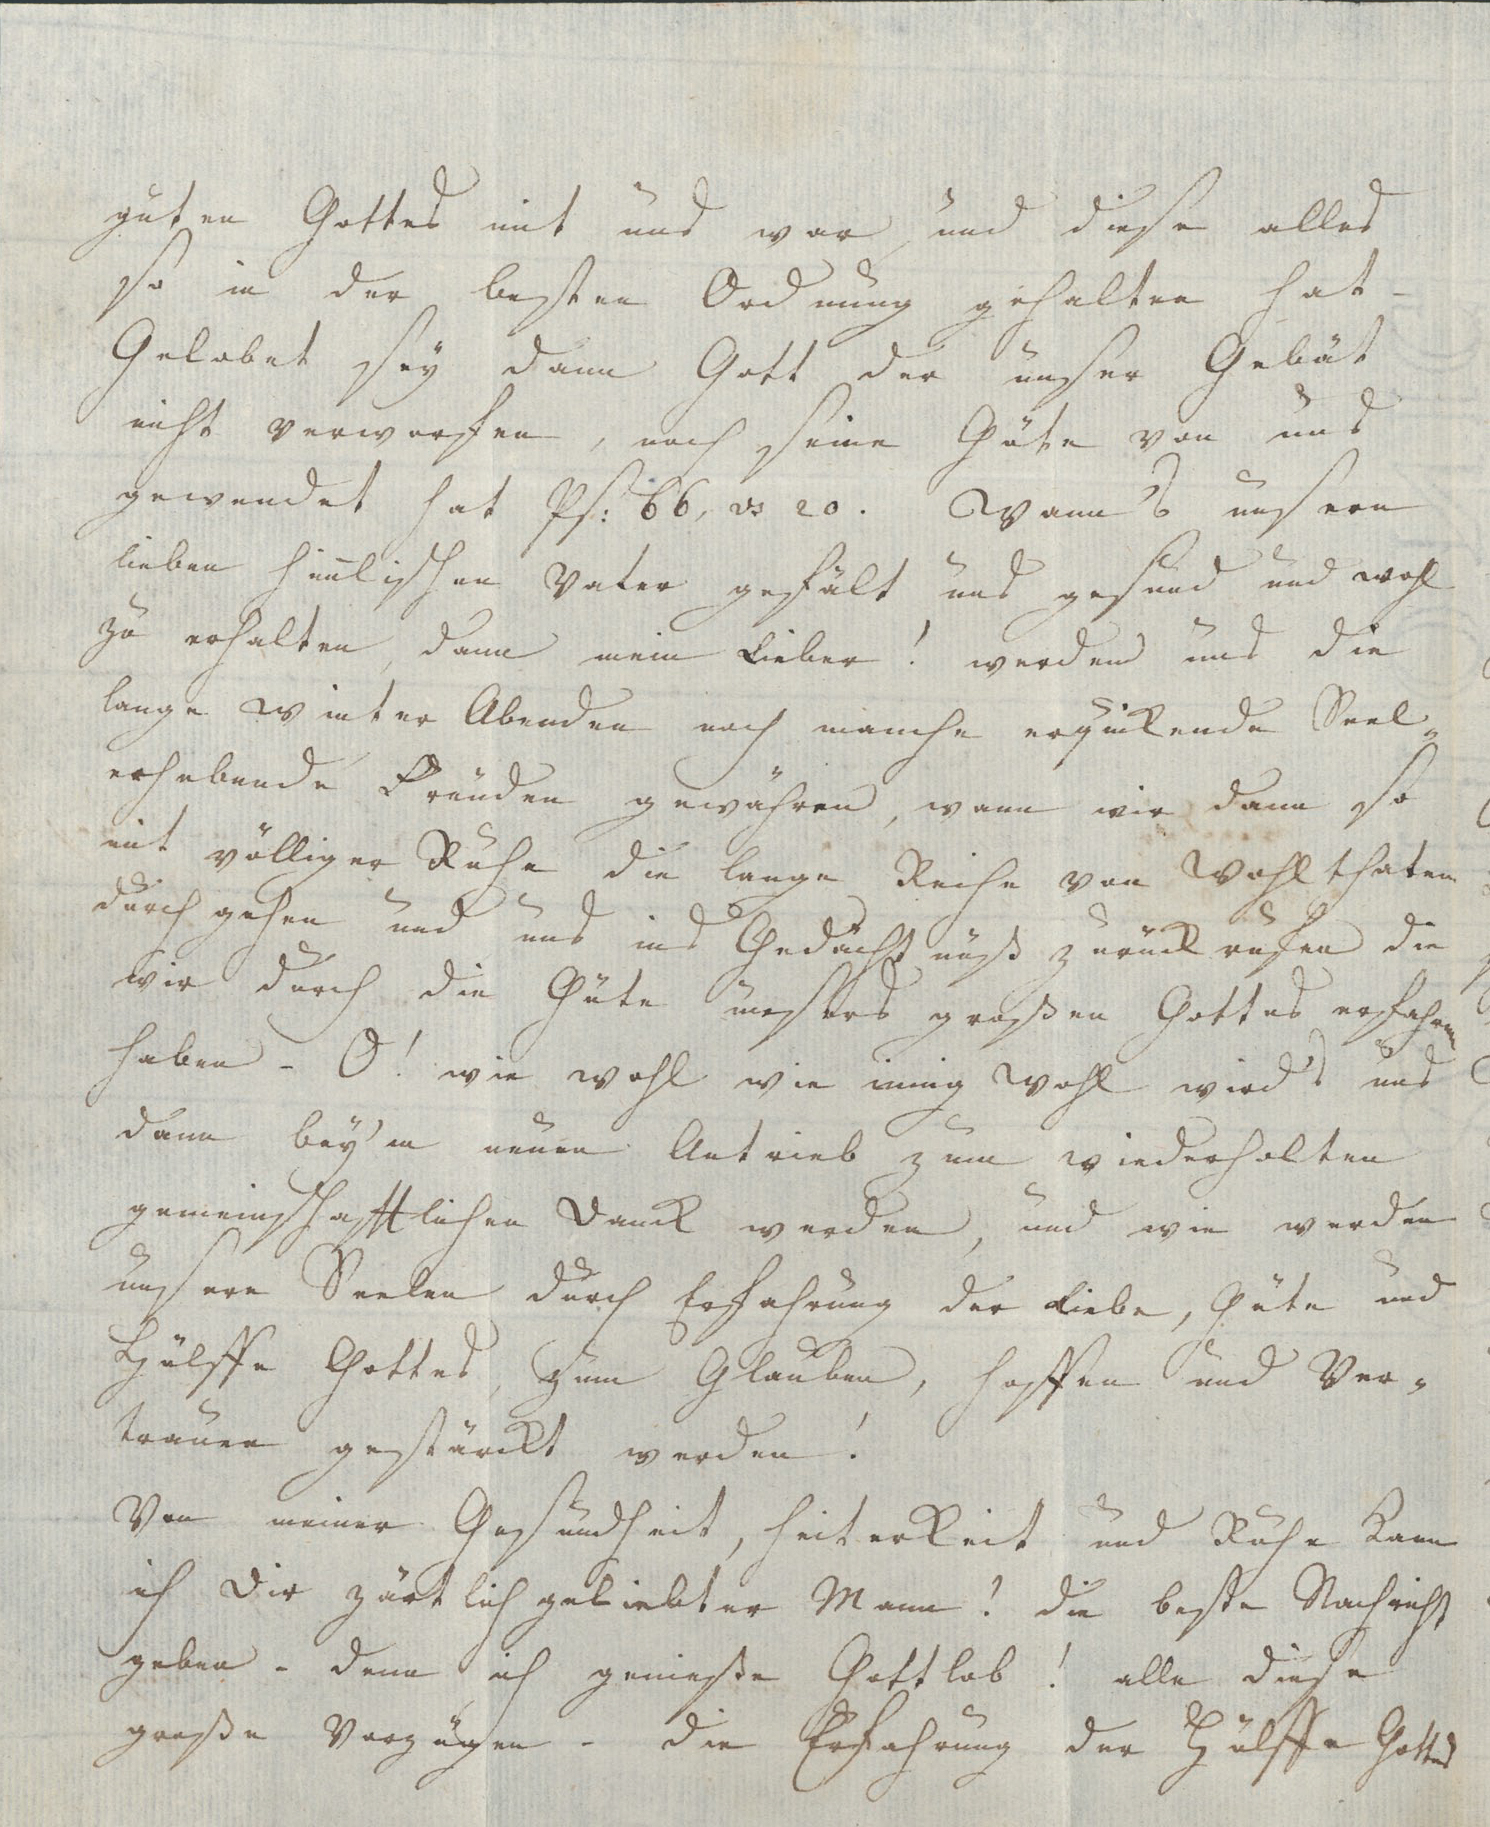 guten Gottes mit uns war und diese alles
so in der besten Ordnung gehalten hat –
Gelobet sey dann Gott der unser Gebät
nicht verworfen, noch seine Güte von uns
gewendet hat Ps: 66, vs 20. Wann's unserm
lieben himlischen Vater gefält uns gesund und wohl
zu erhalten, dann mein Lieber! werden uns die
lange Winter Abenden noch manche erquikende Seel„
erhebende Freuden gewähren, wann wir dann so
mit völliger Ruhe die lange Reihe von Wohlthaten
durchgehen und uns ins Gedächtnüß zurückrufen die
wir durch die Güte unsers großen Gottes erfahren
haben – O! wie wohl wie innig wohl wird's uns
dann bey'm neuen Antrieb zum wiederholten
gemeinschafftlichen Danck werden, und wie werden
unsere Seelen durch Erfahrung der Liebe, Güte und
Hülffe Gottes, zum Glauben, hoffen und Ver„
trauen gestärckt werden!
Von meiner Gesundheit, heiterkeit und Ruhe kann
ich Dir zärtlich geliebter Mann! die beste Nachricht
geben – denn ich genieße Gottlob! alle diese
große Vorzügen – die Erfahrung der Hülffe Gottes